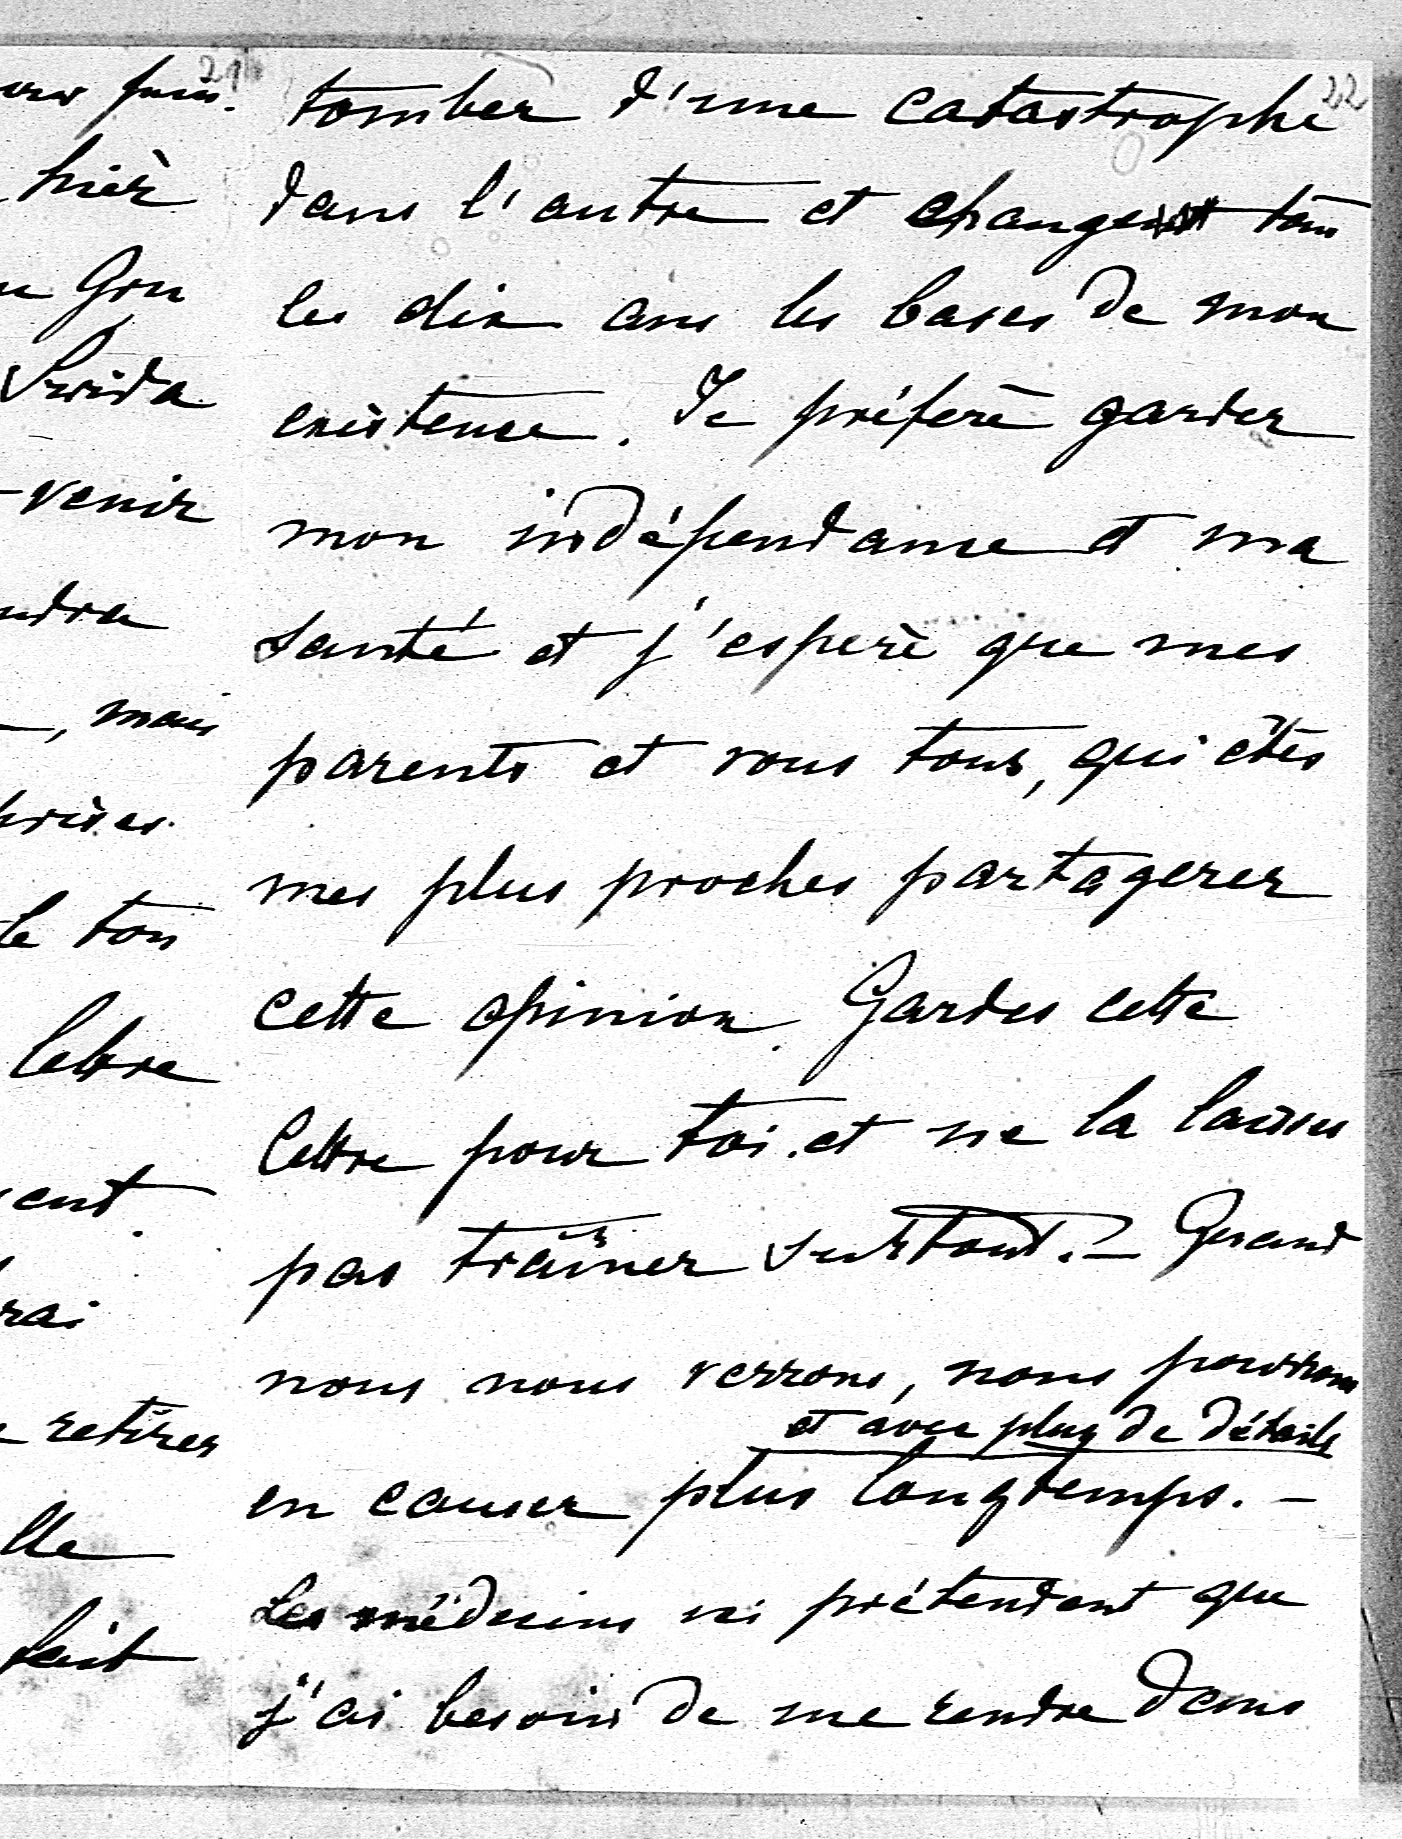 21
hièr
Gou
venir
, mais
le ton
lettre
rai
retirer
lle
fait
22
tomber d'une catastrophe
dans l'autre et changer tous
les dix ans les bases de mon
existence. Je préferè garder
mon indépendance et ma
santé et j'esperè que mes
parents et vous tous, qui êtes
mes plus proches partagerer
cette opinion. Gardes cette
lettre pour toi et ne la laisses
pas traîner surtout. – Quand
nous nous verrons, nous pourrons
et avec plus de détails
en causer plus longtemps. –
Les médecins ici prétendent que
j'ai besoin de me rendre dans